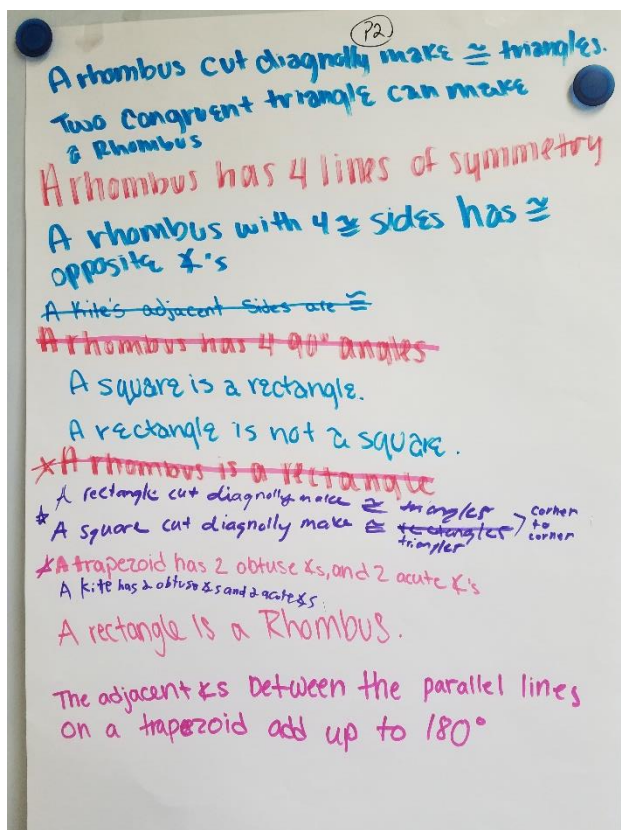 P2
A rhombus cut diagnolly make ≅ triangles.
Two congruent triangle can make
a Rhombus
A rhombus has 4 lines of symmetry
A rhombus with 4 ≅ sides has ≅
opposite ∡'s
A Kite's adjacent Sides are ≅
A rhombus has 4 90° angles
A square is a rectangle.
A rectangle is not a square.
*A rhombus is a rectangle
A rectangle cut diagnolly make ≅ triangles
* A square cut diagnolly make ≅ rectangles
triangles
corner
to
corner
*A trapezoid has 2 obtuse ∡s, and 2 acute ∡'s
A kite has 2 obtuse ∡s and 2 acute ∡s.
A rectangle Is a Rhombus.
The adjacent ∡s between the parallel lines
on a trapezoid add up to 180°